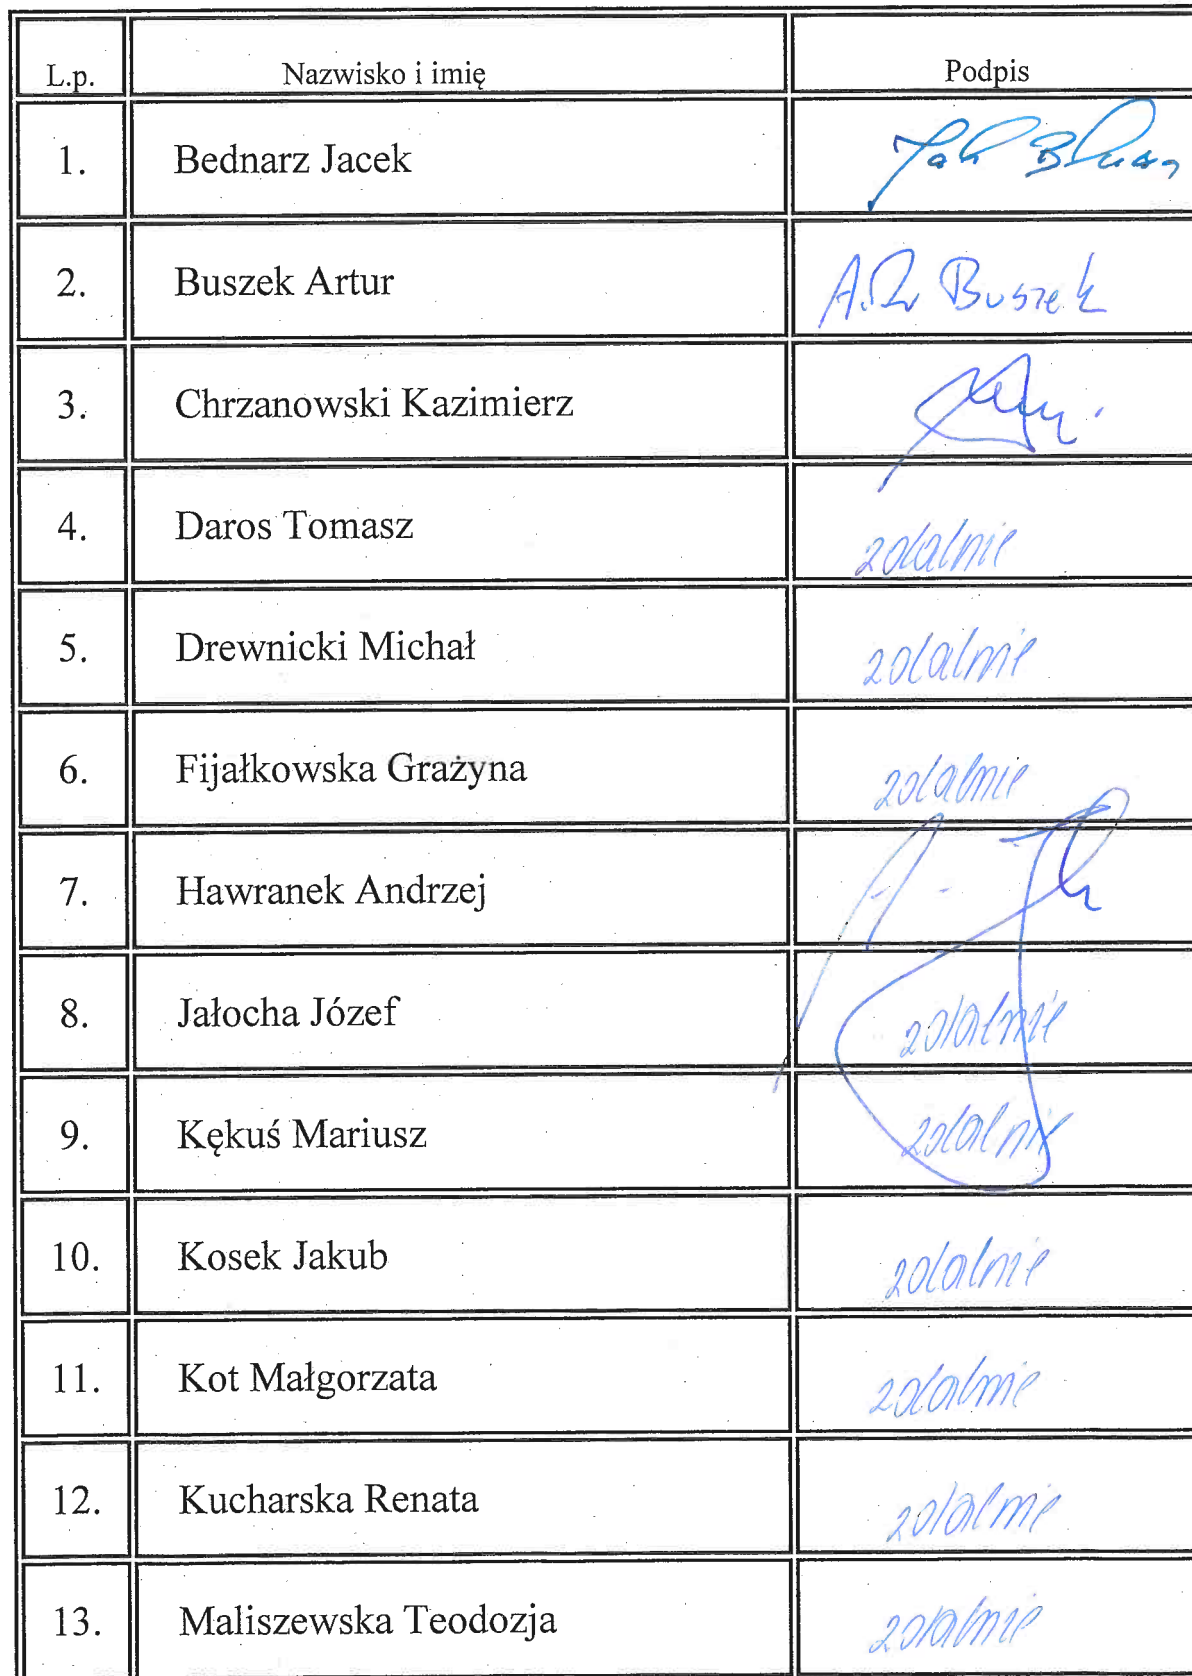 L.p. Nazwisko i imię Podpis
1. Bednarz Jacek
2. Buszek Artur A. Buszek
3. Chrzanowski Kazimierz
4. Daros Tomasz zdalnie
5. Drewnicki Michał zdalnie
6. Fijałkowska Grażyna zdalnie
7. Hawranek Andrzej
8. Jałocha Józef zdalnie
9. Kękuś Mariusz zdalnie
10. Kosek Jakub zdalnie
11. Kot Małgorzata zdalnie
12. Kucharska Renata zdalnie
13. Maliszewska Teodozja zdalnie